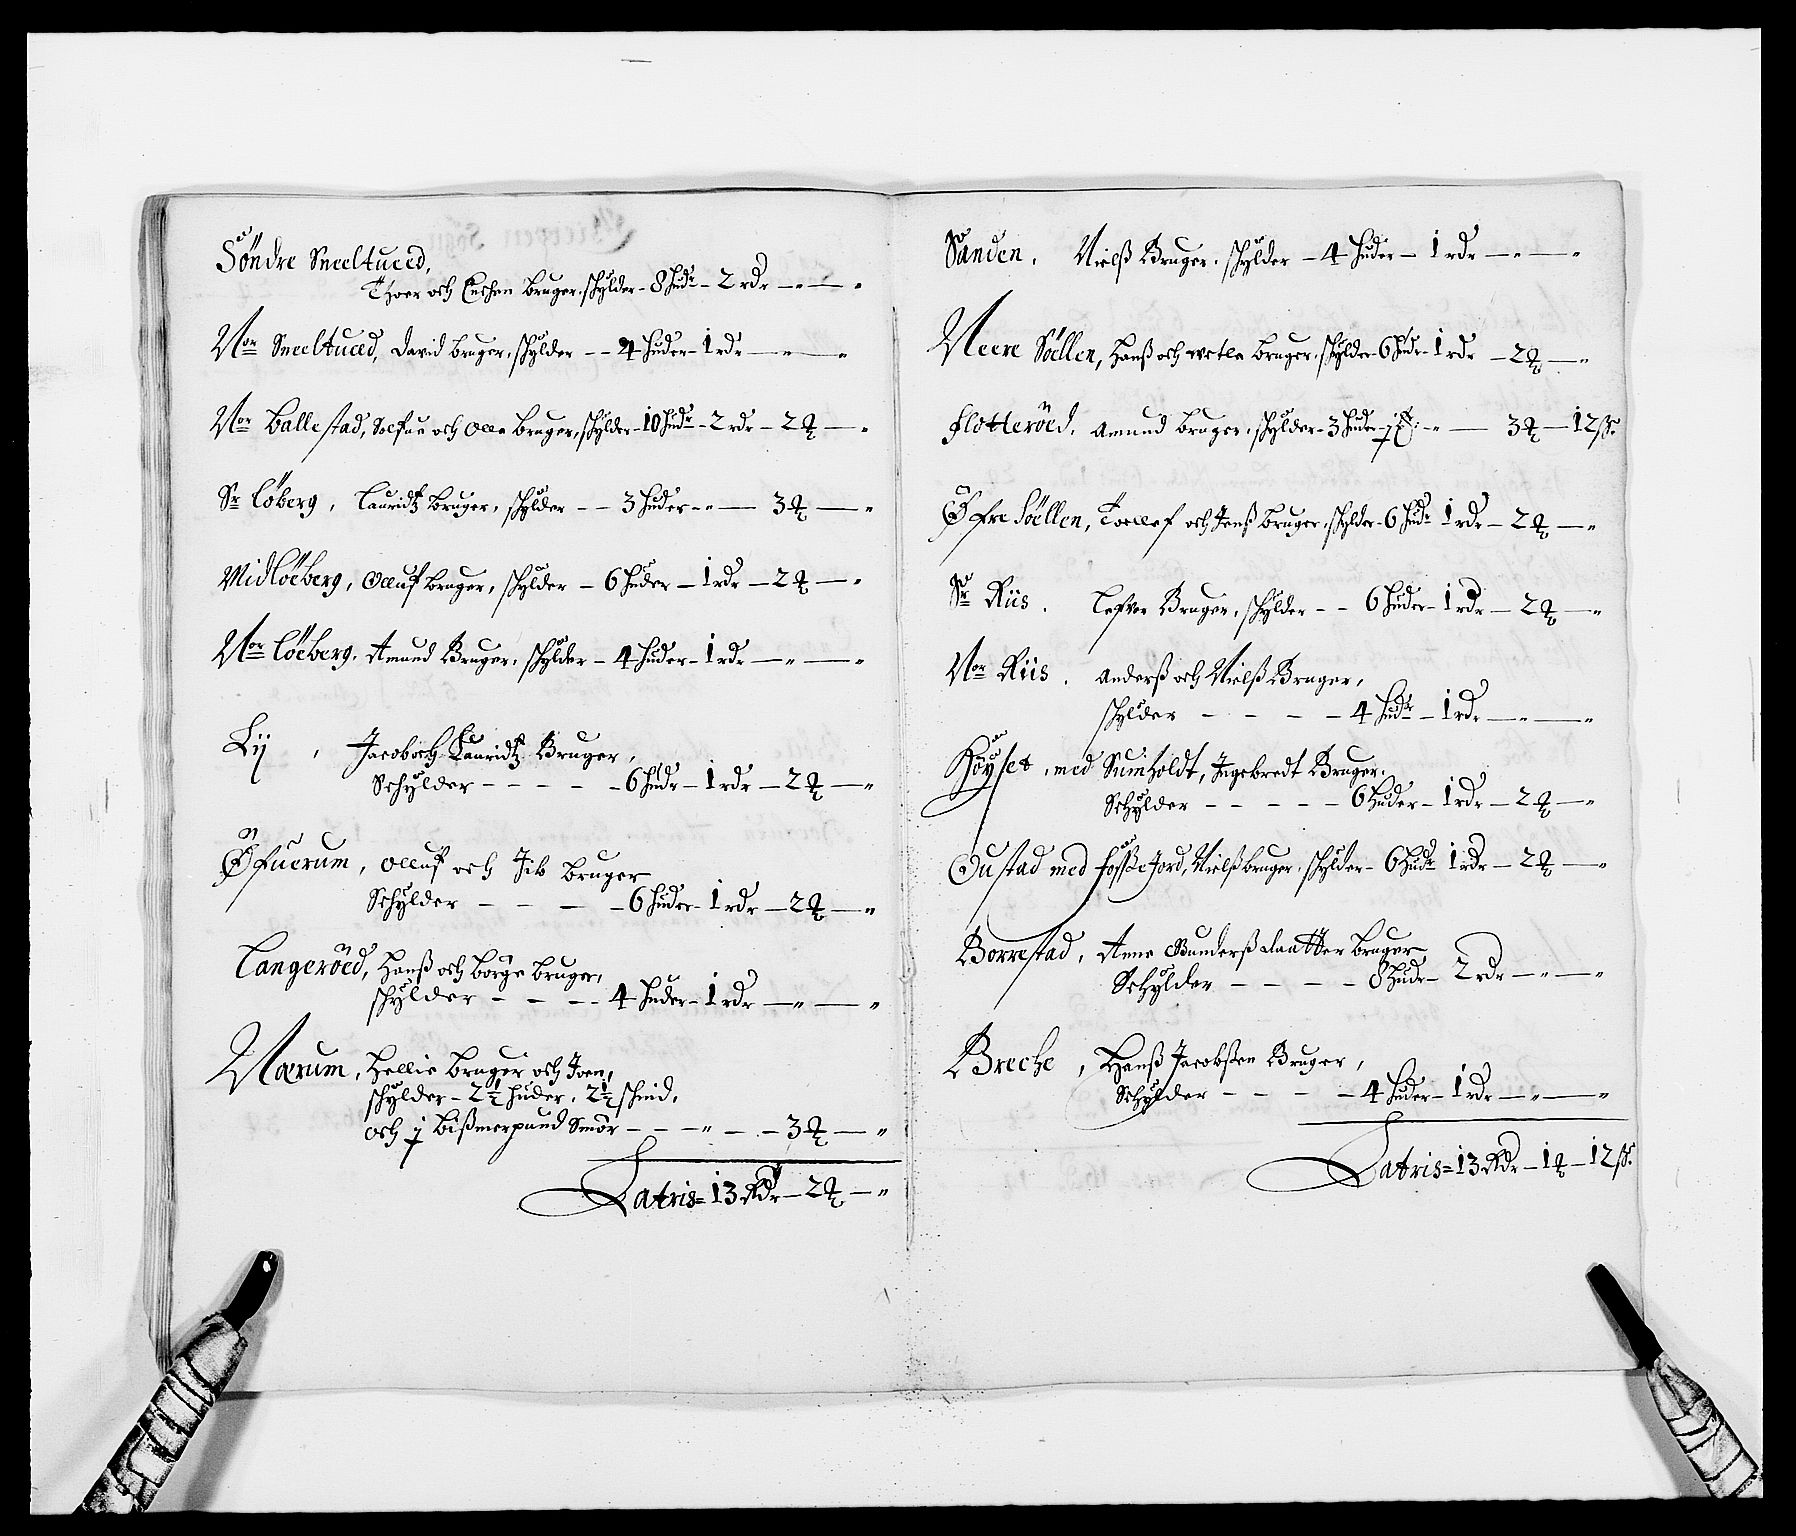 Söndre Sneeltuced,
Thoer och Eschen bruger, schylder - 8 hudr - 2 rdr - " - "
Nor Sneeltuced, David bruger, schylder - - 4 huder - 1 rdr - " - "
Nor Ballestad, och Olle bruger, schylder - 10 hudr - 2 rdr - 2 ℔ - "
Sr Löberg, Lauridtz bruger, schylder - - 3 huder - " - 3 ℔ - "
Midlöeberg, Olluf bruger, schylder - 6 huder - 1 rdr - 2 ℔ - "
Nor Löeberg. Amund Bruger, schylder - 4 huder - 1 rdr - " - "
Lij, Jacob och Lauridtz Bruger,
Schylder - - - - - 6 hudr - 1 rdr - 2 ℔ - "
Øfuerum, Olluf och Jib bruger
Schylder - - - - 6 huder - 1 rdr - 2 ℔ - "
Langeröed, Hanß och Börge bruger,
schylder - - - - 4 huder - 1 rdr - " - "
Nærum, Hellie bruger och Joen,
schylder - 2½ huder, 2½ schind,
och j bißmerpund Smör - - - " - - - 3 ℔ - "
Latris = 13 Rdr - 2 ℔ - "
Sanden, Nielß Bruger, schylder - 4 huder - 1 rdr - " - "
Neere Söellen, Hanß och bruger, schylder - 6 hudr - 1 rdr - 2 ℔ - "
Flotteröed, Amund bruger, schylder - 3 huder - " - 3 ℔ - 12 ß.
Øfre Söellen, Toellef och Jenß bruger, schylder - 6 hudr - 1 rdr - 2 ℔ - "
Sr Riis. Leffuer Bruger, schylder - - 6 huder - 1 rdr - 2 ℔ - "
Nor Riis. Anderß och Nielß Bruger,
schylder - - - - 4 hudr - 1 rdr - " - "
Höyset, med Sumholdt, Ingebredt Bruger,
Schylder - - - - - 6 huder - 1 rdr - 2 ℔ - "
Oustad med foßße Jord, Nielß bruger, schylder - 6 hudr - 1 rdr - 2 ℔ - "
Borrestad, Anne Gunderß daatter bruger
Schylder - - - - 8 hudr - 2 rdr - " - "
Breche, Hanß Jacobßen Bruger,
Schylder - - - - 4 huder - 1 rdr - " - "
Latris = 13 Rdr - 1 ℔ - 12 ß.